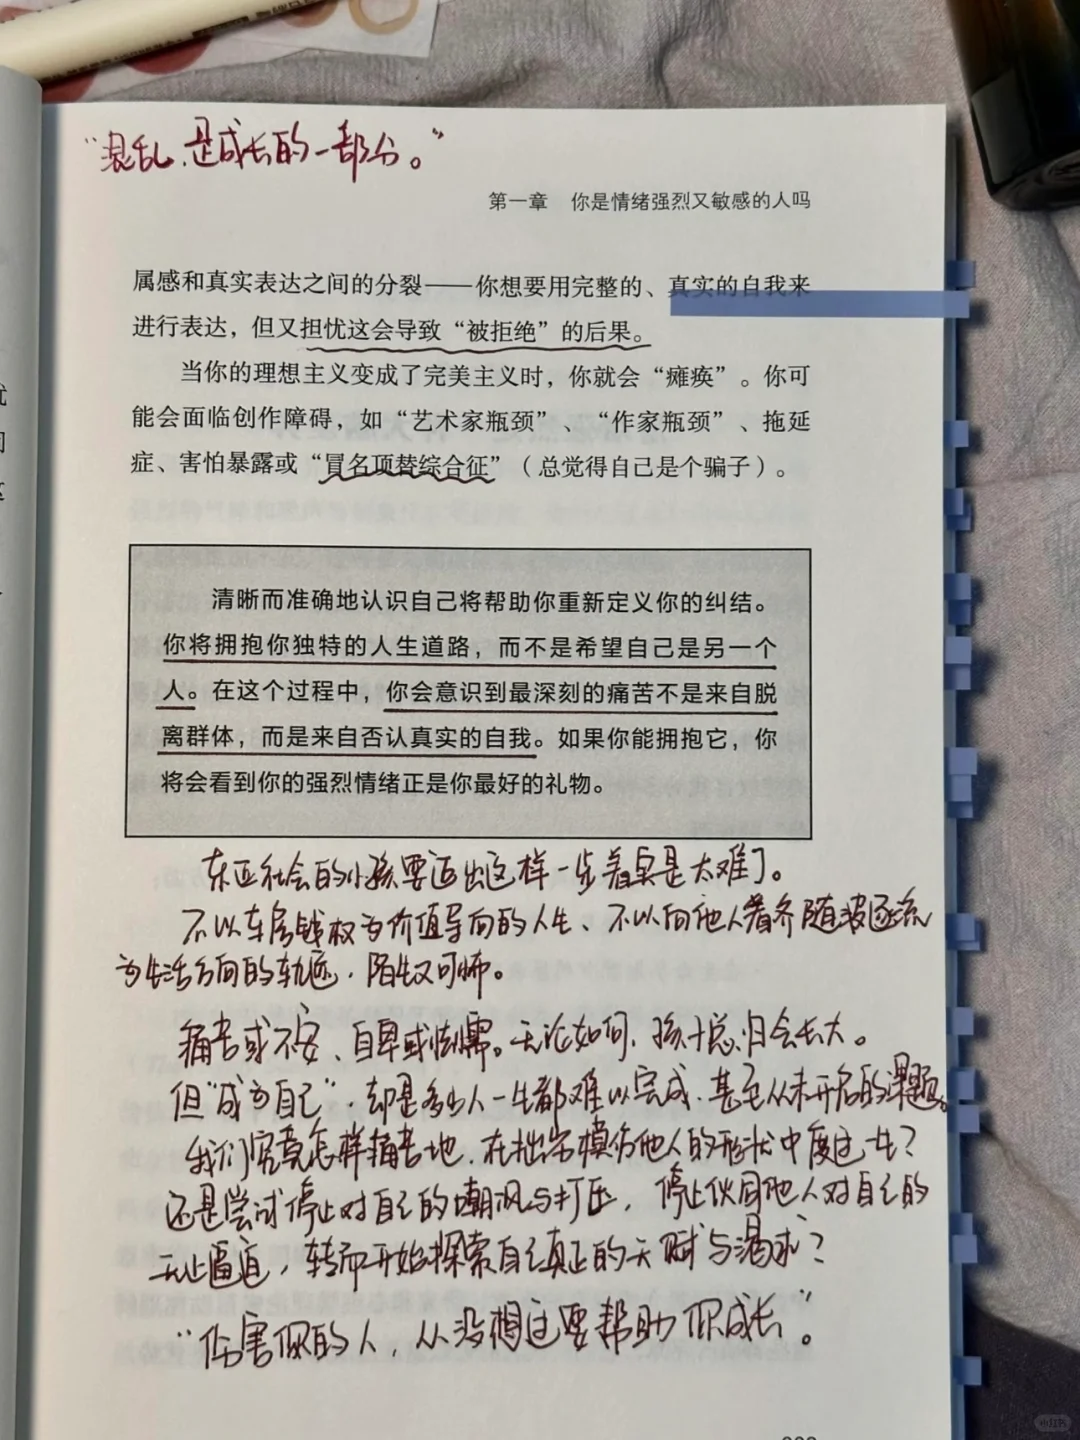 “混乱,是成长的一部分。”
第一章 你是情绪强烈又敏感的人吗
属感和真实表达之间的分裂——你想要用完整的、真实的自我来
进行表达，但又担忧这会导致“被拒绝”的后果。
当你的理想主义变成了完美主义时，你就会“瘫痪”。你可
能会面临创作障碍，如“艺术家瓶颈”、“作家瓶颈”、拖延
症、害怕暴露或“冒名顶替综合征”（总觉得自己是个骗子）。
清晰而准确地认识自己将帮助你重新定义你的纠结。
你将拥抱你独特的人生道路，而不是希望自己是另一个
人。在这个过程中，你会意识到最深刻的痛苦不是来自脱
离群体，而是来自否认真实的自我。如果你能拥抱它，你
将会看到你的强烈情绪正是你最好的礼物。
东亚社会的小孩要迈出这样一步着实是太难了。
不以车房钱权为价值导向的人生、不以向他人看齐随波逐流
为生活方向的轨迹,陌生又可怖。
痛苦或不安、自卑或怯懦。无论如何,孩子总归会长大。
但“成为自己”,却是多少人一生都难以完成、甚至从未开启的课题。
我们究竟怎样痛苦地,在拙劣模仿他人的形状中度过一生?
还是尝试停止对自己的嘲讽与打压,停止伙同他人对自己的
无止逼迫,转而开始探索自己真正的天赋与渴求?
“伤害你的人,从没想过要帮助你成长”。
小红书